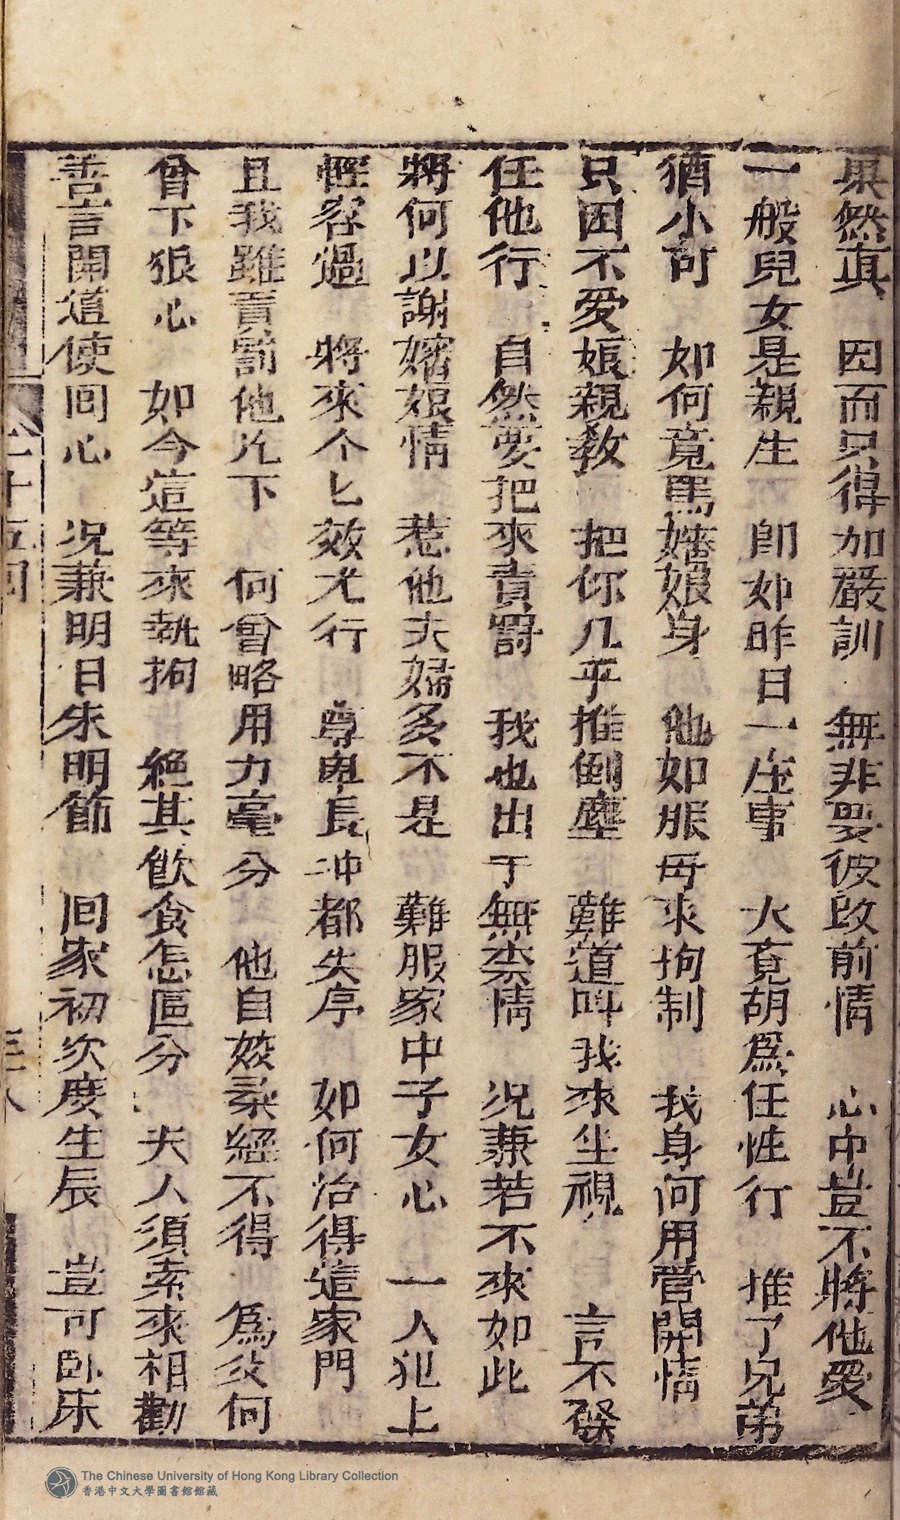 果然真　因而只得加嚴訓　無非要彼改前情　心中豈不將他愛
一般兒女是親生　即如昨日一座事　火竟胡為任性行　推了兄弟
猶小可　如何竟罵嬸娘身　他如服毋求拘制　我身何用管閒情
只因不愛娘親敎　把你几乎推倒塵　難道叫我來坐視　言不發
任他行　自然要把來責罰　我也出于無柰情　況兼若不來如此
將何以謝嬸娘情　惹他夫婦多不是　難服家中子女心　一人犯上
輕容過　將來个匕效尤行　尊卑長冲都失序　如何治得這家門
且我雖責罰他几下　何曾略用力毫分　他自姣柔經不得　為父何
曾下狠心　如今這等來執拘　絕其飮食怎區分　夫人須索來相勸
善言開道使回心　況兼明日朱明節　回家初次度生辰　豈可卧床
二十五回
三八
The Chinese University of Hong Kong Library Collection
香港中文大學圖書館館藏